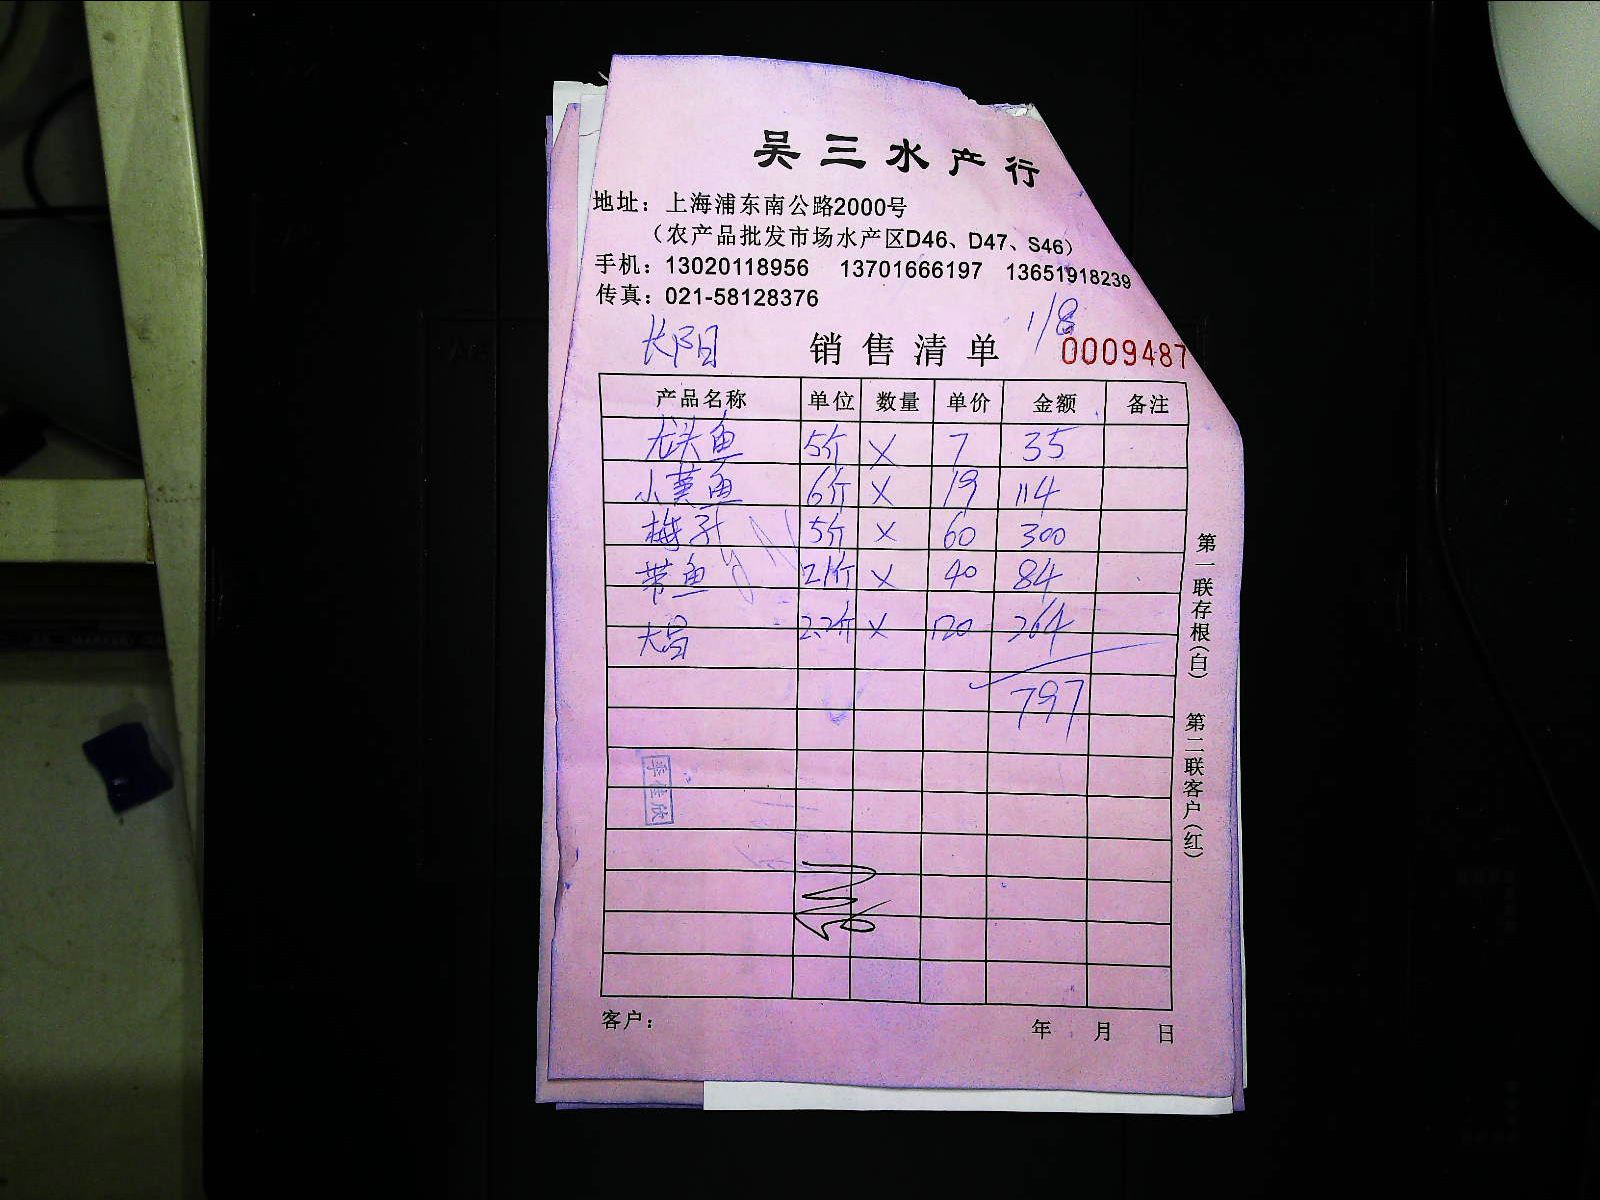 吴三水产行
地址：上海浦东南公路2000号
（农产品批发市场水产区D46、D47、S46）
手机：13020118956 13701666197 13651918239
传真：021-58128376
长阳 销售清单 1/8
0009487
产品名称 单位 数量 单价 金额 备注
龙头鱼 5斤 X 7 35
小黄鱼 6斤 X 19 114
梅子 5斤 X 60 300
带鱼 2.1斤 X 40 84
2.2斤 X 120 264
797
第一联存根（白） 第二联客户（红）
客户： 年 月 日